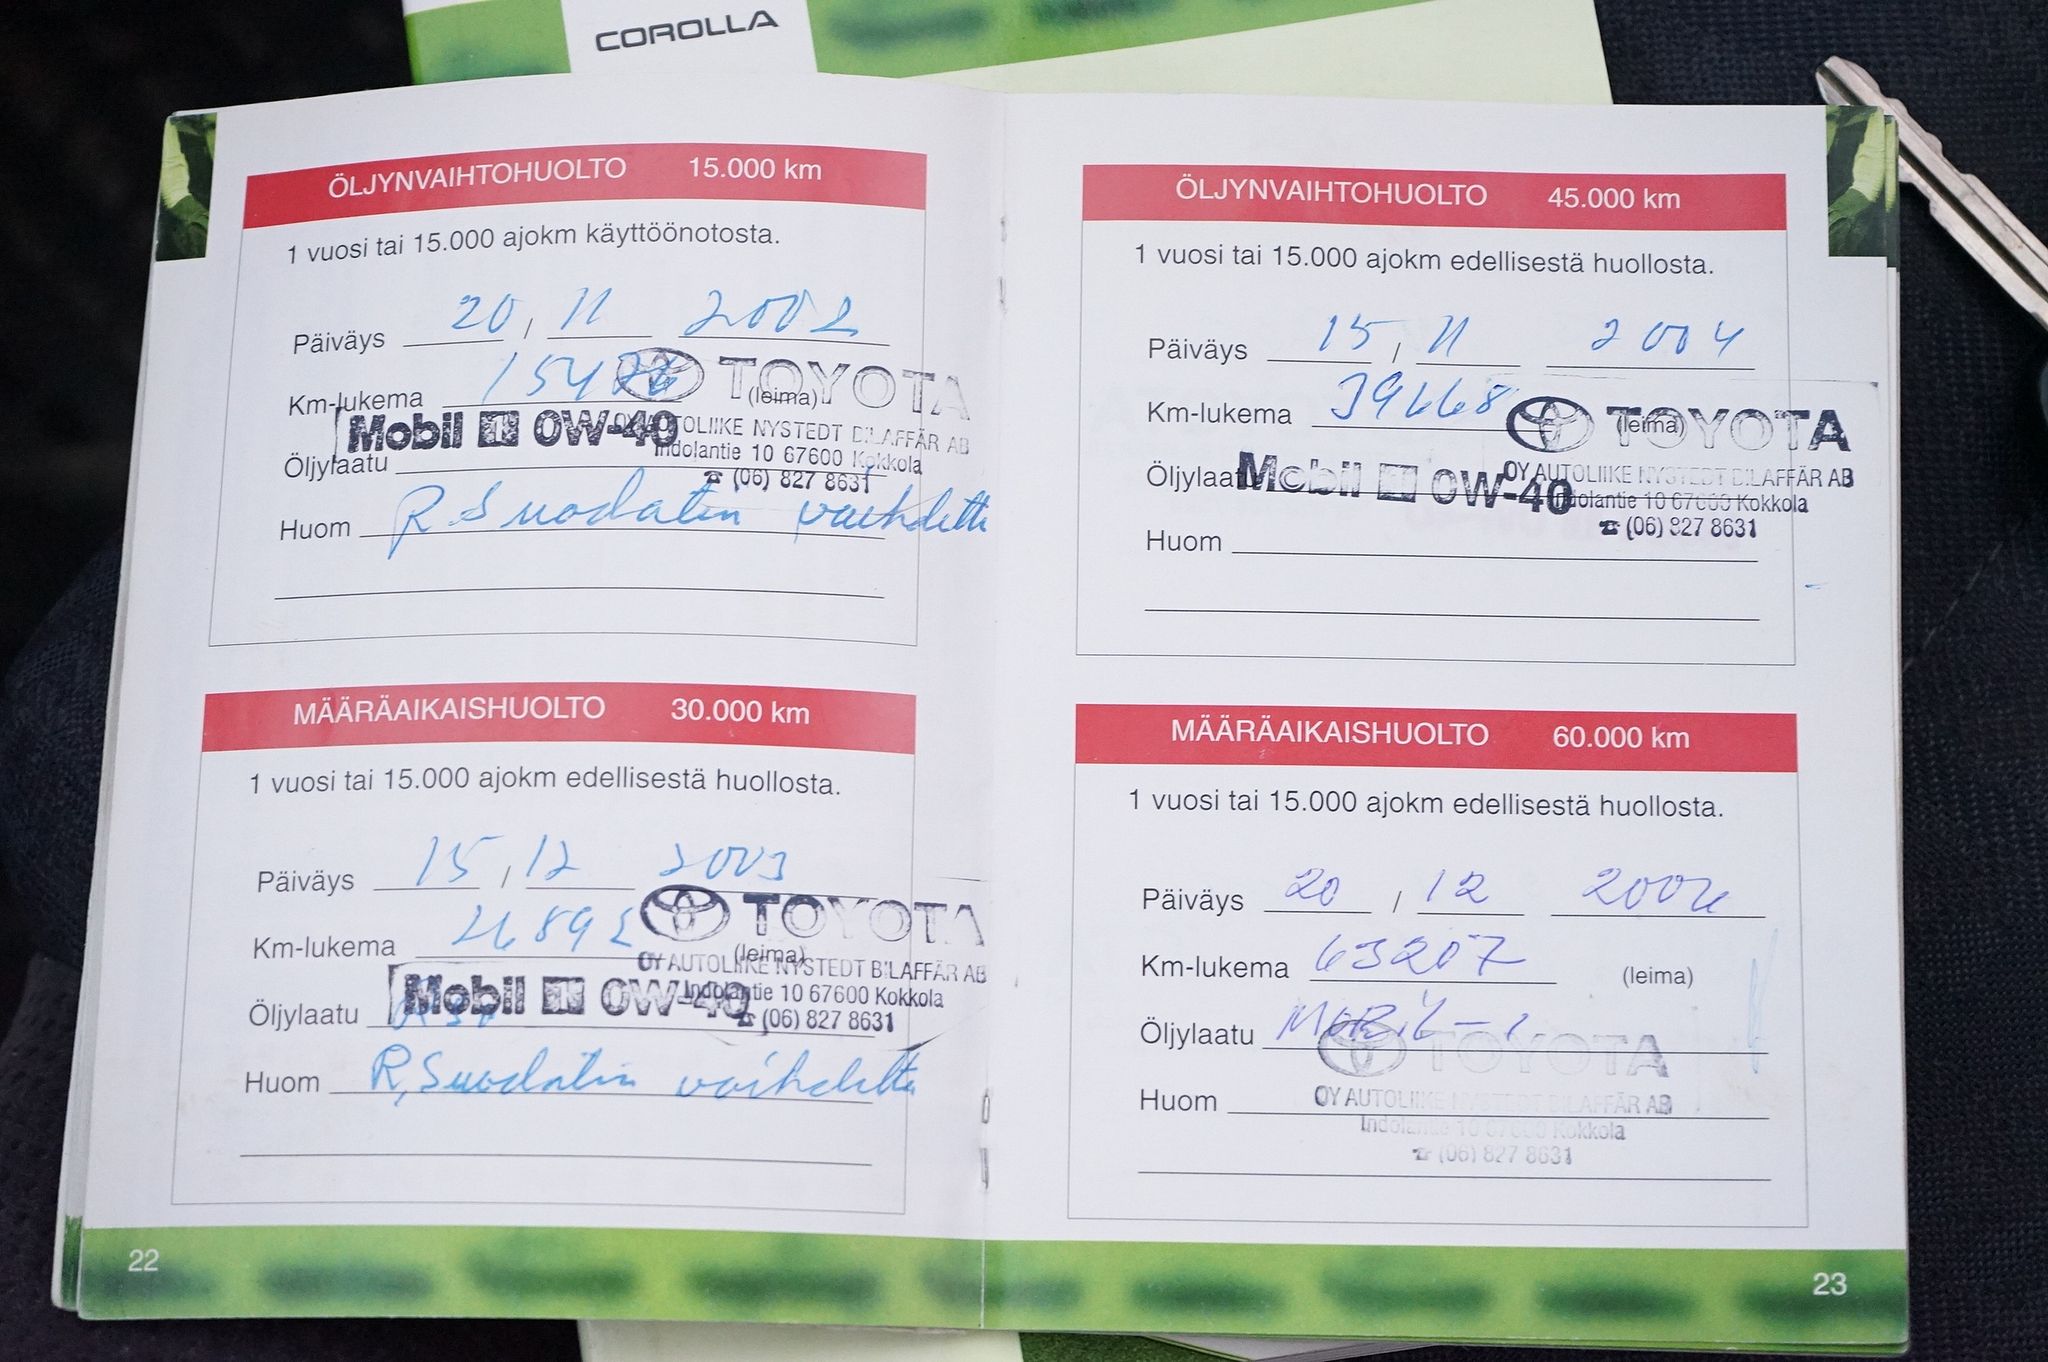 COROLLA
ÖLJYNVAIHTOHUOLTO 15.000 km
1 vuosi tai 15.000 ajokm käyttöönotosta.
Päiväys 20 / 11 2002
Km-lukema
TOYOTA
(leima)
Mobil 1 0W-40
OY AUTOLIIKE NYSTEDT BILAFFÄR AB
Indolantie 10 67600 Kokkola
Öljylaatu
☎ (06) 827 8631
Huom R. Suodatin vaihdettu
MÄÄRÄAIKAISHUOLTO 30.000 km
1 vuosi tai 15.000 ajokm edellisestä huollosta.
Päiväys 15 / 12 2003
TOYOTA
Km-lukema
(leima)
OY AUTOLIIKE NYSTEDT BILAFFÄR AB
Mobil 1 0W-40
Indolantie 10 67600 Kokkola
Öljylaatu
☎ (06) 827 8631
Huom R, Suodatin vaihdettu
22
ÖLJYNVAIHTOHUOLTO 45.000 km
1 vuosi tai 15.000 ajokm edellisestä huollosta.
Päiväys 15 / 11 2004
Km-lukema 39668
TOYOTA
(leima)
Öljylaatu Mobil 1 0W-40
OY AUTOLIIKE NYSTEDT BILAFFÄR AB
Indolantie 10 67600 Kokkola
☎ (06) 827 8631
Huom
MÄÄRÄAIKAISHUOLTO 60.000 km
1 vuosi tai 15.000 ajokm edellisestä huollosta.
Päiväys 20 / 12
Km-lukema 63207 (leima)
Öljylaatu MOBIL-1
TOYOTA
Huom
OY AUTOLIIKE NYSTEDT BILAFFÄR AB
Indolantie 10 67600 Kokkola
☎ (06) 827 8631
23